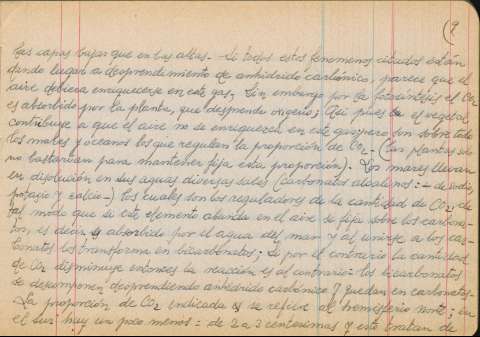 (9
las capas bajas que en las altas.- Si todos estos fenomenos citados están
dando lugar a desprendimiento de anhidrido carbónico, parece que el
aire debiera enriquecerse en este gas. Sin embargo por la fotosíntesis el CO2
es absorbido por la planta, que desprende oxigeno; Asi pues el vegetal
contribuye a que el aire no se enriquezca en este gas, pero son sobre todo
los mares y oceanos los que regulan la proporción de CO2 - (Las plantas solas
no bastarian para mantener fija esta proporción). Los mares llevan
en disolución en sus aguas diversas sales (carbonatos alcalinos: - de sodio,
potasio y calcio -) los cuales son los reguladores de la cantidad de CO2, de
tal modo que si este elemento abunda en el aire se fija sobre los carbona-
tos, es decir es absorbido por el agua del mar y al unirse a los car-
bonatos los transforma en bicarbonatos; Si por el contrario la cantidad
de CO2 disminuye entonces la reacción es al contrario: los bicarbonatos
se descomponen desprendiendo anhidrido carbónico y quedan en carbonatos.
La proporción de CO2 indicada se refiere al hemisferio norte; en
el sur hay un poco menos: de 2 a 3 centesimas y esto tratan de